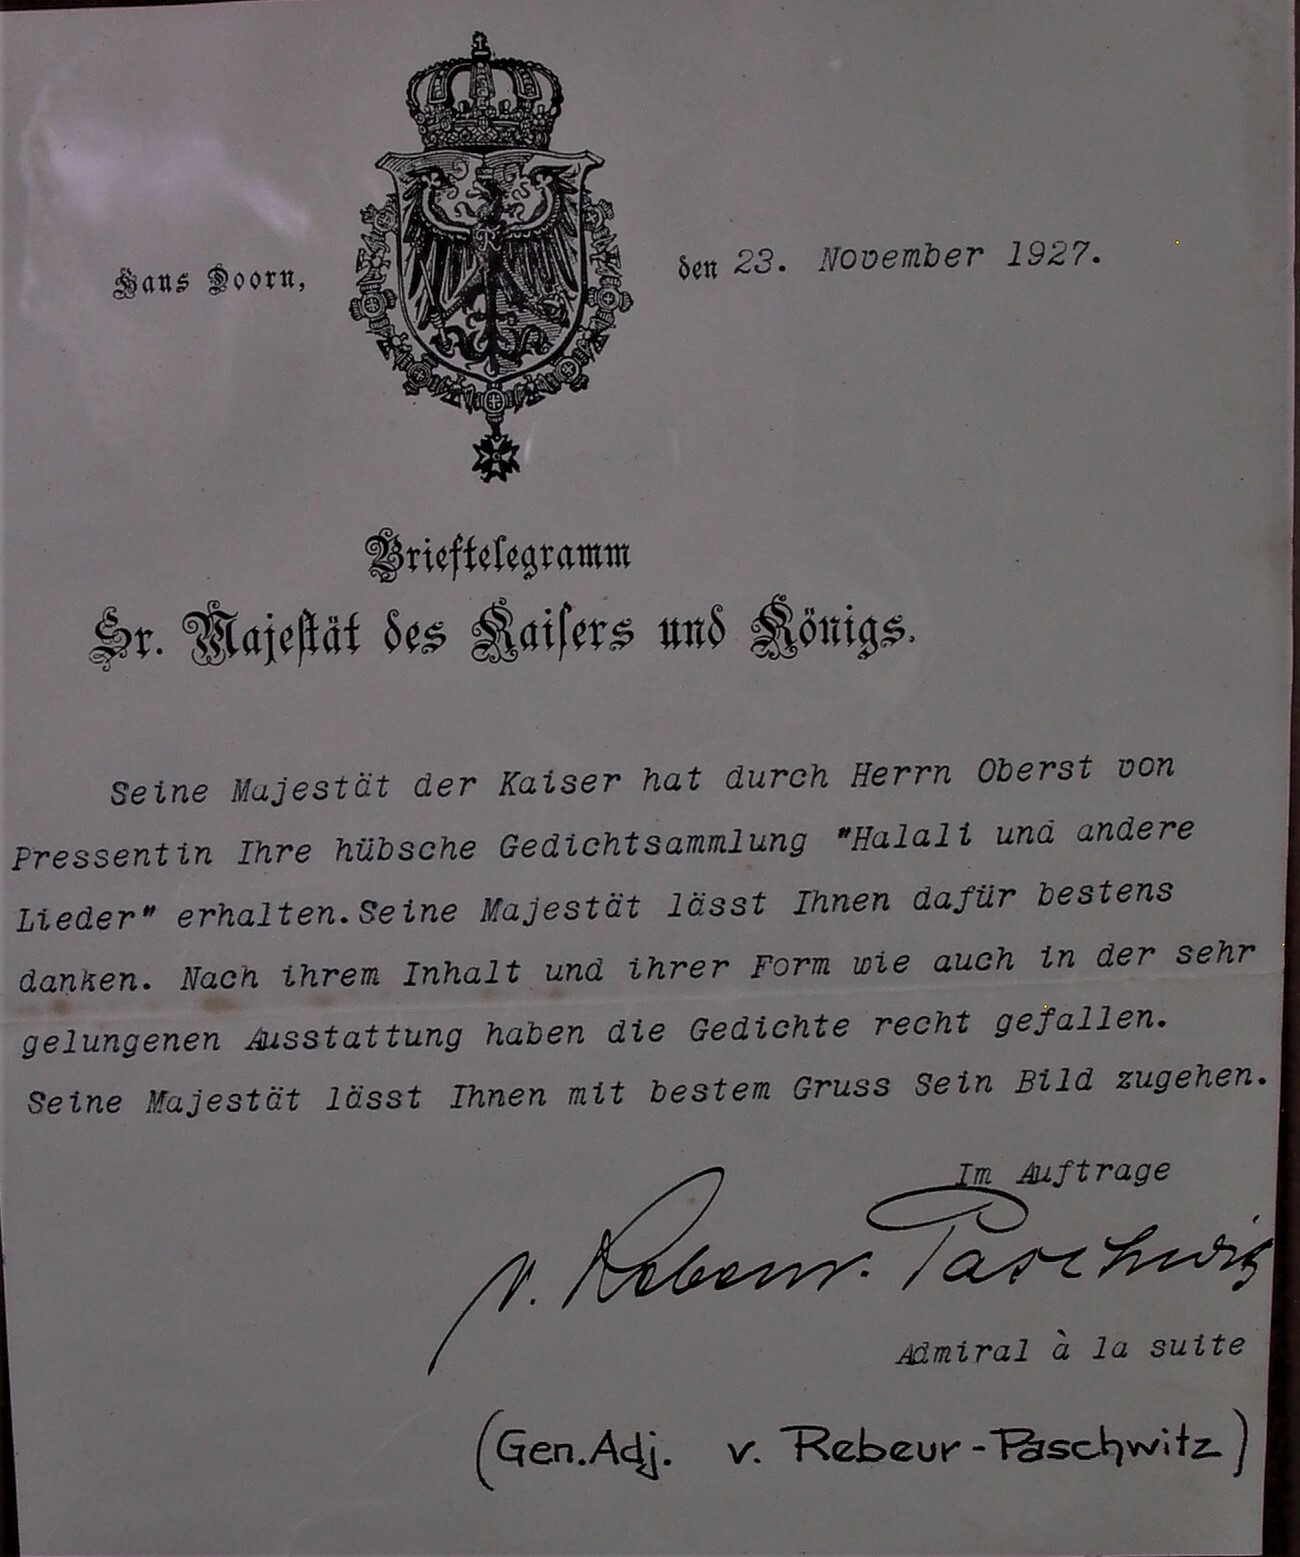 Haus Doorn, den 23. November 1927.
Brieftelegramm
Sr. Majestät des Kaisers und Königs.
Seine Majestät der Kaiser hat durch Herrn Oberst von
Pressentin Ihre hübsche Gedichtsammlung "Halali und andere
Lieder" erhalten. Seine Majestät lässt Ihnen dafür bestens
danken. Nach ihrem Inhalt und ihrer Form wie auch in der sehr
gelungenen Ausstattung haben die Gedichte recht gefallen.
Seine Majestät lässt Ihnen mit bestem Gruss Sein Bild zugehen.
Im Auftrage
v. Rebeur. Paschwitz
Admiral à la suite
(Gen. Adj. v. Rebeur-Paschwitz)